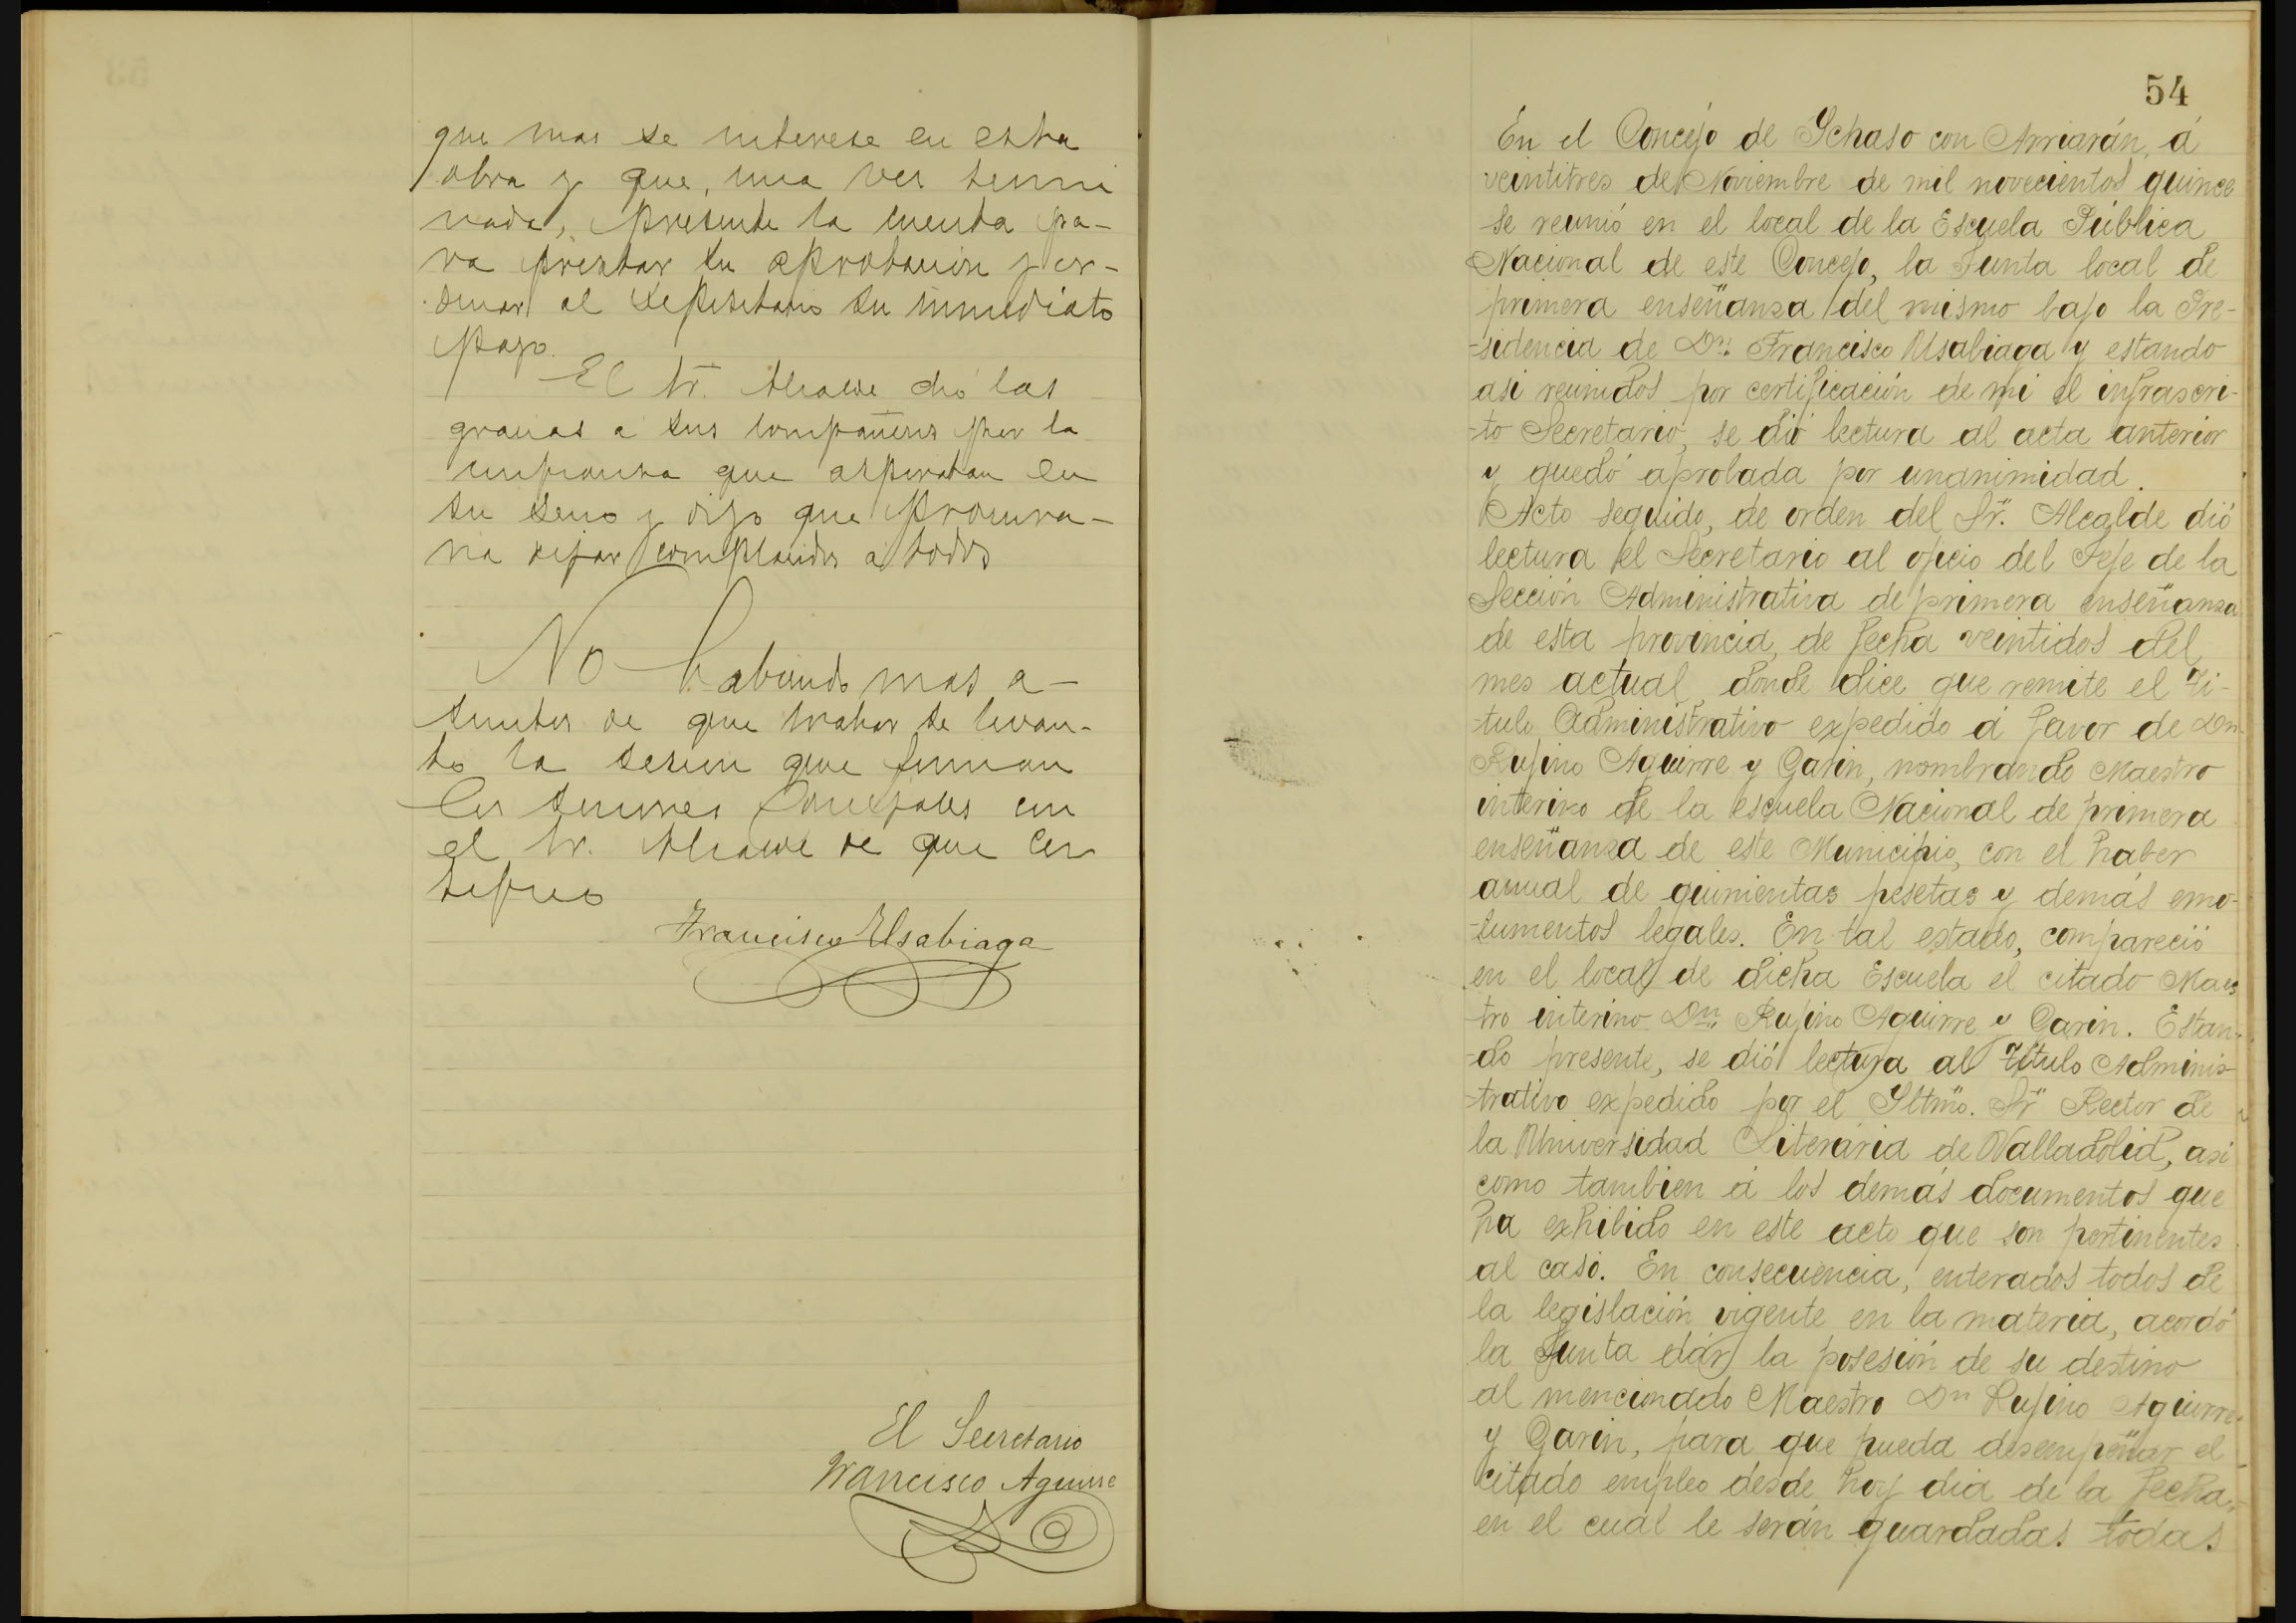 que mas se interese en esta
obra y que, una ves termi
nada, presente la cuenta pa-
ra prestar su aprobacion y or-
denar al depositario su inmediato
pago.
El Sr. Alcalde dió las
gracias a sus compañeros por la
confianza que
su seno y dijo que procura-
ria dejar complacidos a todos
No habiendo mas a-
suntos de que tratar se levan-
to la sesion que firman
los señores Concejales con
el Sr. Alcalde de que cer
tifico
Francisco Usabiaga
El Secretario
Francisco Aguirre
54
En el Concejo de Ychaso con Arriarán, á
veintitres de Noviembre de mil novecientos quince
se reunió en el local de la Escuela Pública
Nacional de este Concejo, la Junta local de
primera enseñanza del mismo bajo la Pre-
-sidencia de Dn. Francisco Usabiaga y estando
asi reunidos por certificación de mi el infrascri-
-to Secretario, se dió lectura al acta anterior
y quedó aprobada por unanimidad.
Acto seguido, de orden del Sr. Alcalde dió
lectura el Secretario al oficio del Jefe de la
Sección Administrativa de primera enseñanza
de esta provincia, de fecha veintidos del
mes actual, donde dice que remite el Tí-
-tulo Administrativo expedido á favor de Dn
Rufino Aguirre y Garin, nombrando Maestro
interino de la escuela Nacional de primera
enseñanza de este Municipio, con el haber
anual de quinientas pesetas y demás emo-
-lumentos legales. En tal estado, compareció
en el local de dicha Escuela el citado Maes
-tro interino Dn. Rufino Aguirre y Garin. Estan-
-do presente, se dió lectura al Título Adminis-
-trativo expedido por el Yltmo. Sr Rector de
la Universidad Literária de Valladolid, asi
como tambien á los demás documentos que
ha exhibido en este acto que son pertinentes
al caso. En consecuencia, enterados todos de
la legislación vigente en la materia, acordó
la Junta dár la posesión de su destino
al mencionado Maestro Dn Rufino Aguirre
y Garin, para que pueda desempeñar el
citado empleo desde hoy dia de la fecha,
en el cual le serán guardadas todas